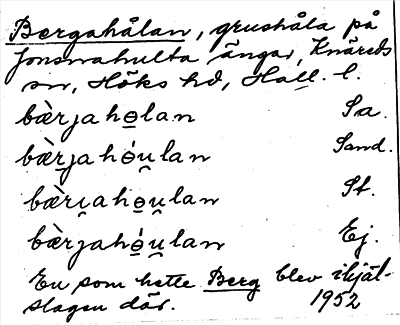 Bergahålan, grushåla på
Jonsnahulta ängar, Knäreds
sn, Höks hd, Hall. l.
bærjahɵlan Sa.
bæ̀rjahɵ́u̯lan Sand.
bæ̀ri̯ahɵu̯lan St.
bæ̀rjahɵ́u̯lan Ej.
En som hette Berg blev ihjäl-
slagen där. 1952